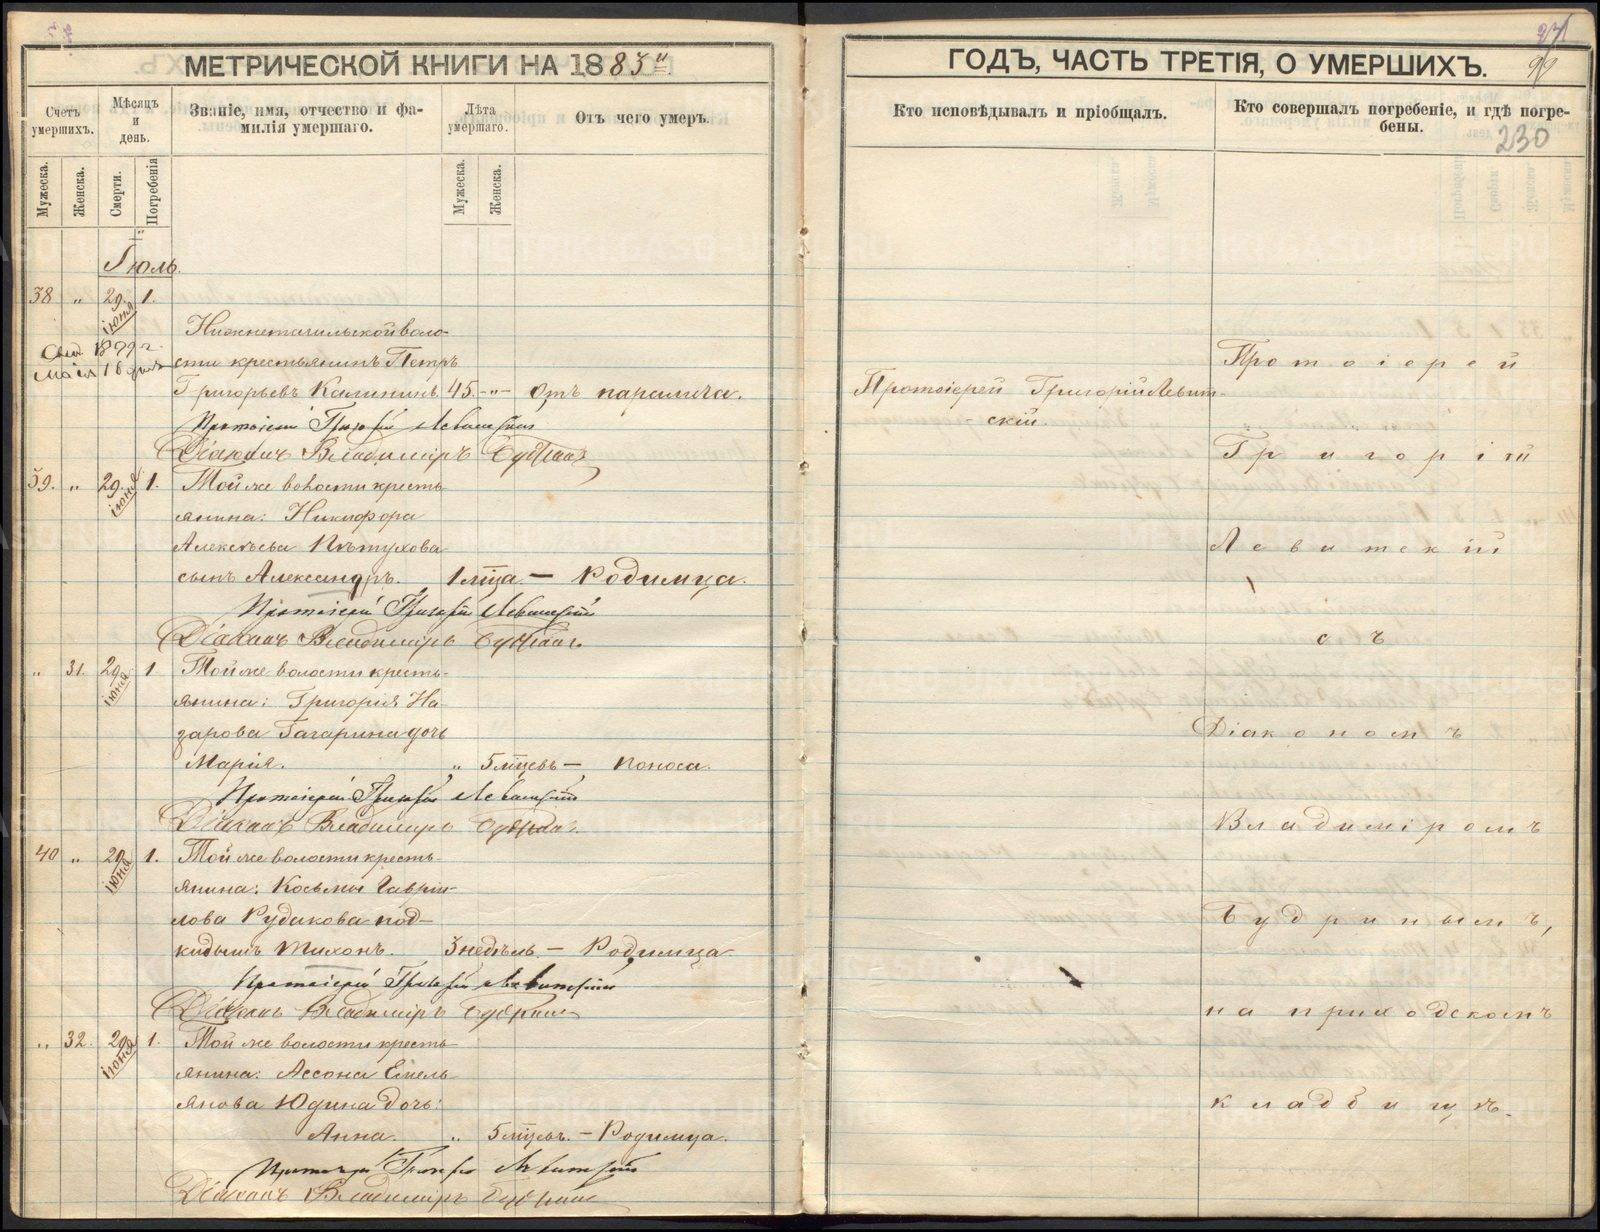 МЕТРИЧЕСКОЙ КНИГИ НА 1883й
Счетъ умершихъ.
Мѣсяцъ и день.
Званіе, имя, отчество и фамилія умершаго.
Лѣта умершаго.
Отъ чего умеръ.
Мужеска.
Женска.
Смерти.
Погребенія
Мужеска.
Женска.
Іюль.
38 „ 29. іюня 1.
Нижнетагильской воло-
сти крестьянинъ Петръ
Григорьевъ Калининъ 45. -„- Отъ паралича.
1899 г.
мая 18 дня
Протоіерей Григорій Левитскій
Діаконъ Владиміръ Будринъ
39. „ 29. іюня 1. Той же волости кресть-
янина: Никифора
Алексѣева Пѣтухова
сынъ Александръ. 1 мѣсца. — Родимца.
Протоіерей Григорій Левитскій
Діаконъ Владиміръ Будринъ
„ 31. 29. іюня 1 Той же волости кресть-
янина: Григорія На-
зарова Гагарина дочь
Марія. „ 5 мѣсцевъ — Поноса.
Протоіерей Григорій Левитскій
Діаконъ Владиміръ Будринъ
40 „ 29. іюня 1. Той же волости кресть-
янина: Косьмы Гаврі-
лова Рудакова под-
кидышъ Тихонъ. 3 недѣль. — Родимца
Протоіерей Григорій Левитскій
Діаконъ Владиміръ Будринъ
„ 32. 29. іюня 1. Той же волости кресть-
янина: Ассона Емель-
янова Юдина дочь:
Анна. „ 5 мѣсцевъ. — Родимца.
Протоіерей Григорій Левитскій
Діаконъ Владиміръ Будринъ
ГОДЪ, ЧАСТЬ ТРЕТІЯ, О УМЕРШИХЪ.
99
Кто исповѣдывалъ и пріобщалъ.
Кто совершалъ погребеніе, и гдѣ погре-
бены.
230
Протоіерей Григорій Левит-
скій.
Протоіерей
Григорій
Левитскій
съ
Діакономъ
Владиміромъ
Будринымъ,
на приходскомъ
кладбищѣ.